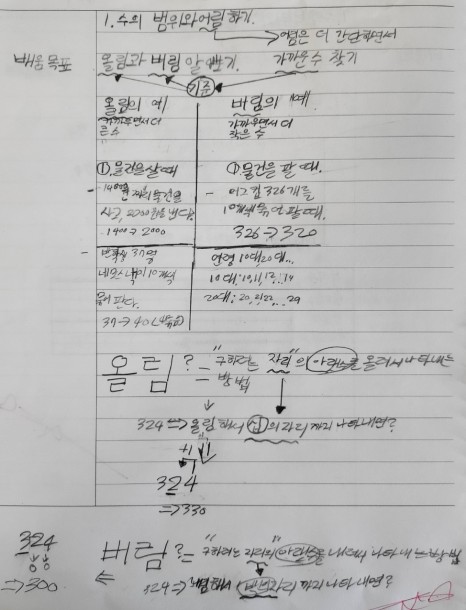 1. 수의 범위와 어림하기.
어림은 더 간단하면서
배움 목표
올림과 버림 알보기.
가까운 수 찾기
기준
올림의 예
가까우면서 더
큰 수
버림의 예
가까우면서 더
작은 수
①. 물건을 살 때
- 1400원 짜리 물건을
사고, 2000원을 낸다.
1400→2000
- 반 학생 37명
10개씩
판다.
37→40
①물건을 팔 때.
- 326개를
10개씩 묶어 팔 때.
326→320
연령 10대, 20대...
10대: 10, 11, 12...14
20대: 20, 21, 22...29
올림? = "구하려는 자리"의 아랫수를 올려서 나타내는
방법
324 => 올림해서 십의 자리까지 나타내면?
+1
324
=>330
버림? = "구하려는 자리의 아랫수를 내려서 나타내는 방법
324 → 버림해서 백의 자리까지 나타내면?
324
0 0
=>300